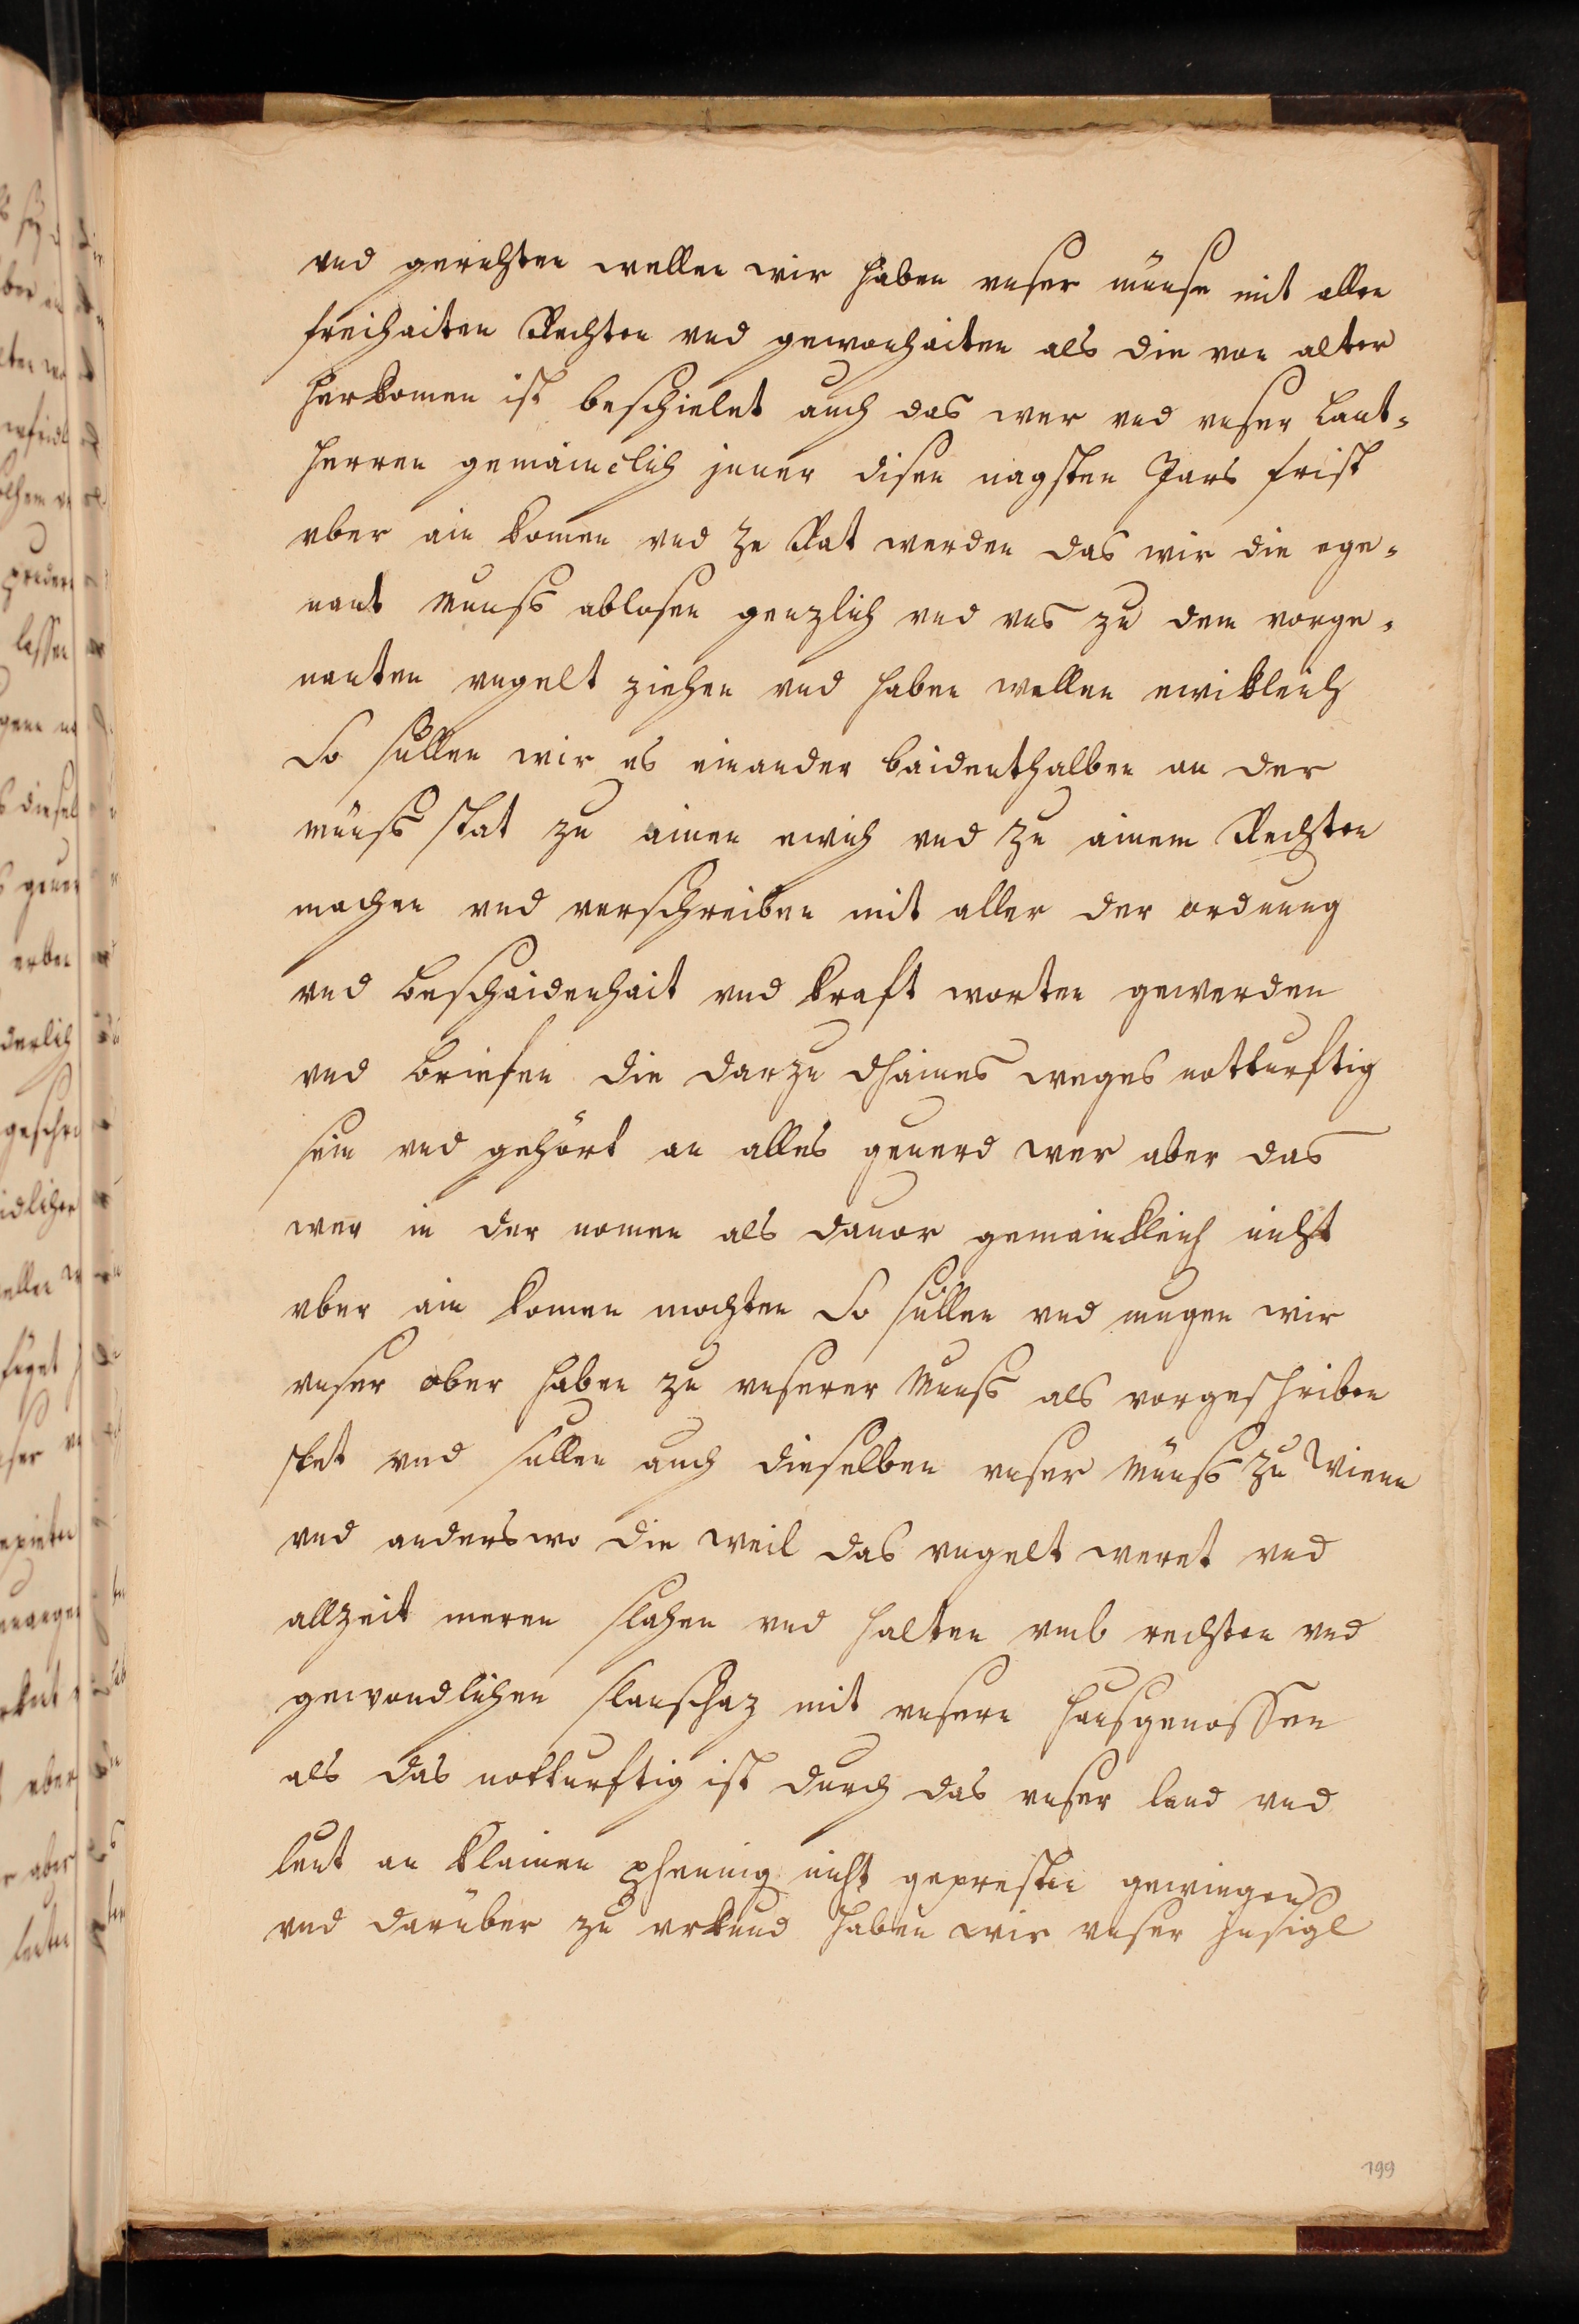 vnd gerichten wellen wir haben vnser münse mit allen
freihaiten Rechten vnd gewonhaiten als die von alter
herkomen ist beschielet auch das wer vnd vnser Lant=
herren gemainclich inner disen nagsten Jars frist
vber ain komen vnd ze Rat werden das wir die ege=
nant Munss ablosen genzlich vnd vns zu dem vorge=
nanten vngelt ziehen vnd haben wellen ewikleich
So süllen wir es einander baidenthalben an der
münss stat zu ainen ewich vnd zu ainem Rechten
machen vnd verschreiben mit aller der ordnung
vnd Beschaidenhait vnd kraft worten gewerden
vnd Briefen die darzu dhaines weges notturftig
sein vnd gehört an alles geuerd wer aber das
wer in der nomen als dauor gemainkleich nicht
vber ain komen mochten So süllen vnd mugen wir
vnser ober haben zu vnserer Munss als vorgeschriben
stet vnd sullen auch dieselben vnser Münss zu Wienn
vnd anderswo die weil das vngelt weret vnd
allzeit meren slahen vnd halten vmb rechten vnd
gewondlichen slanschaz mit vnsern Hausgenossen
als das notturftig ist durch das vnser land vnd
leut an klainen phennig nicht geprestn gewingen
vnd darüber zu vrkund haben wir vnser Insigl
199